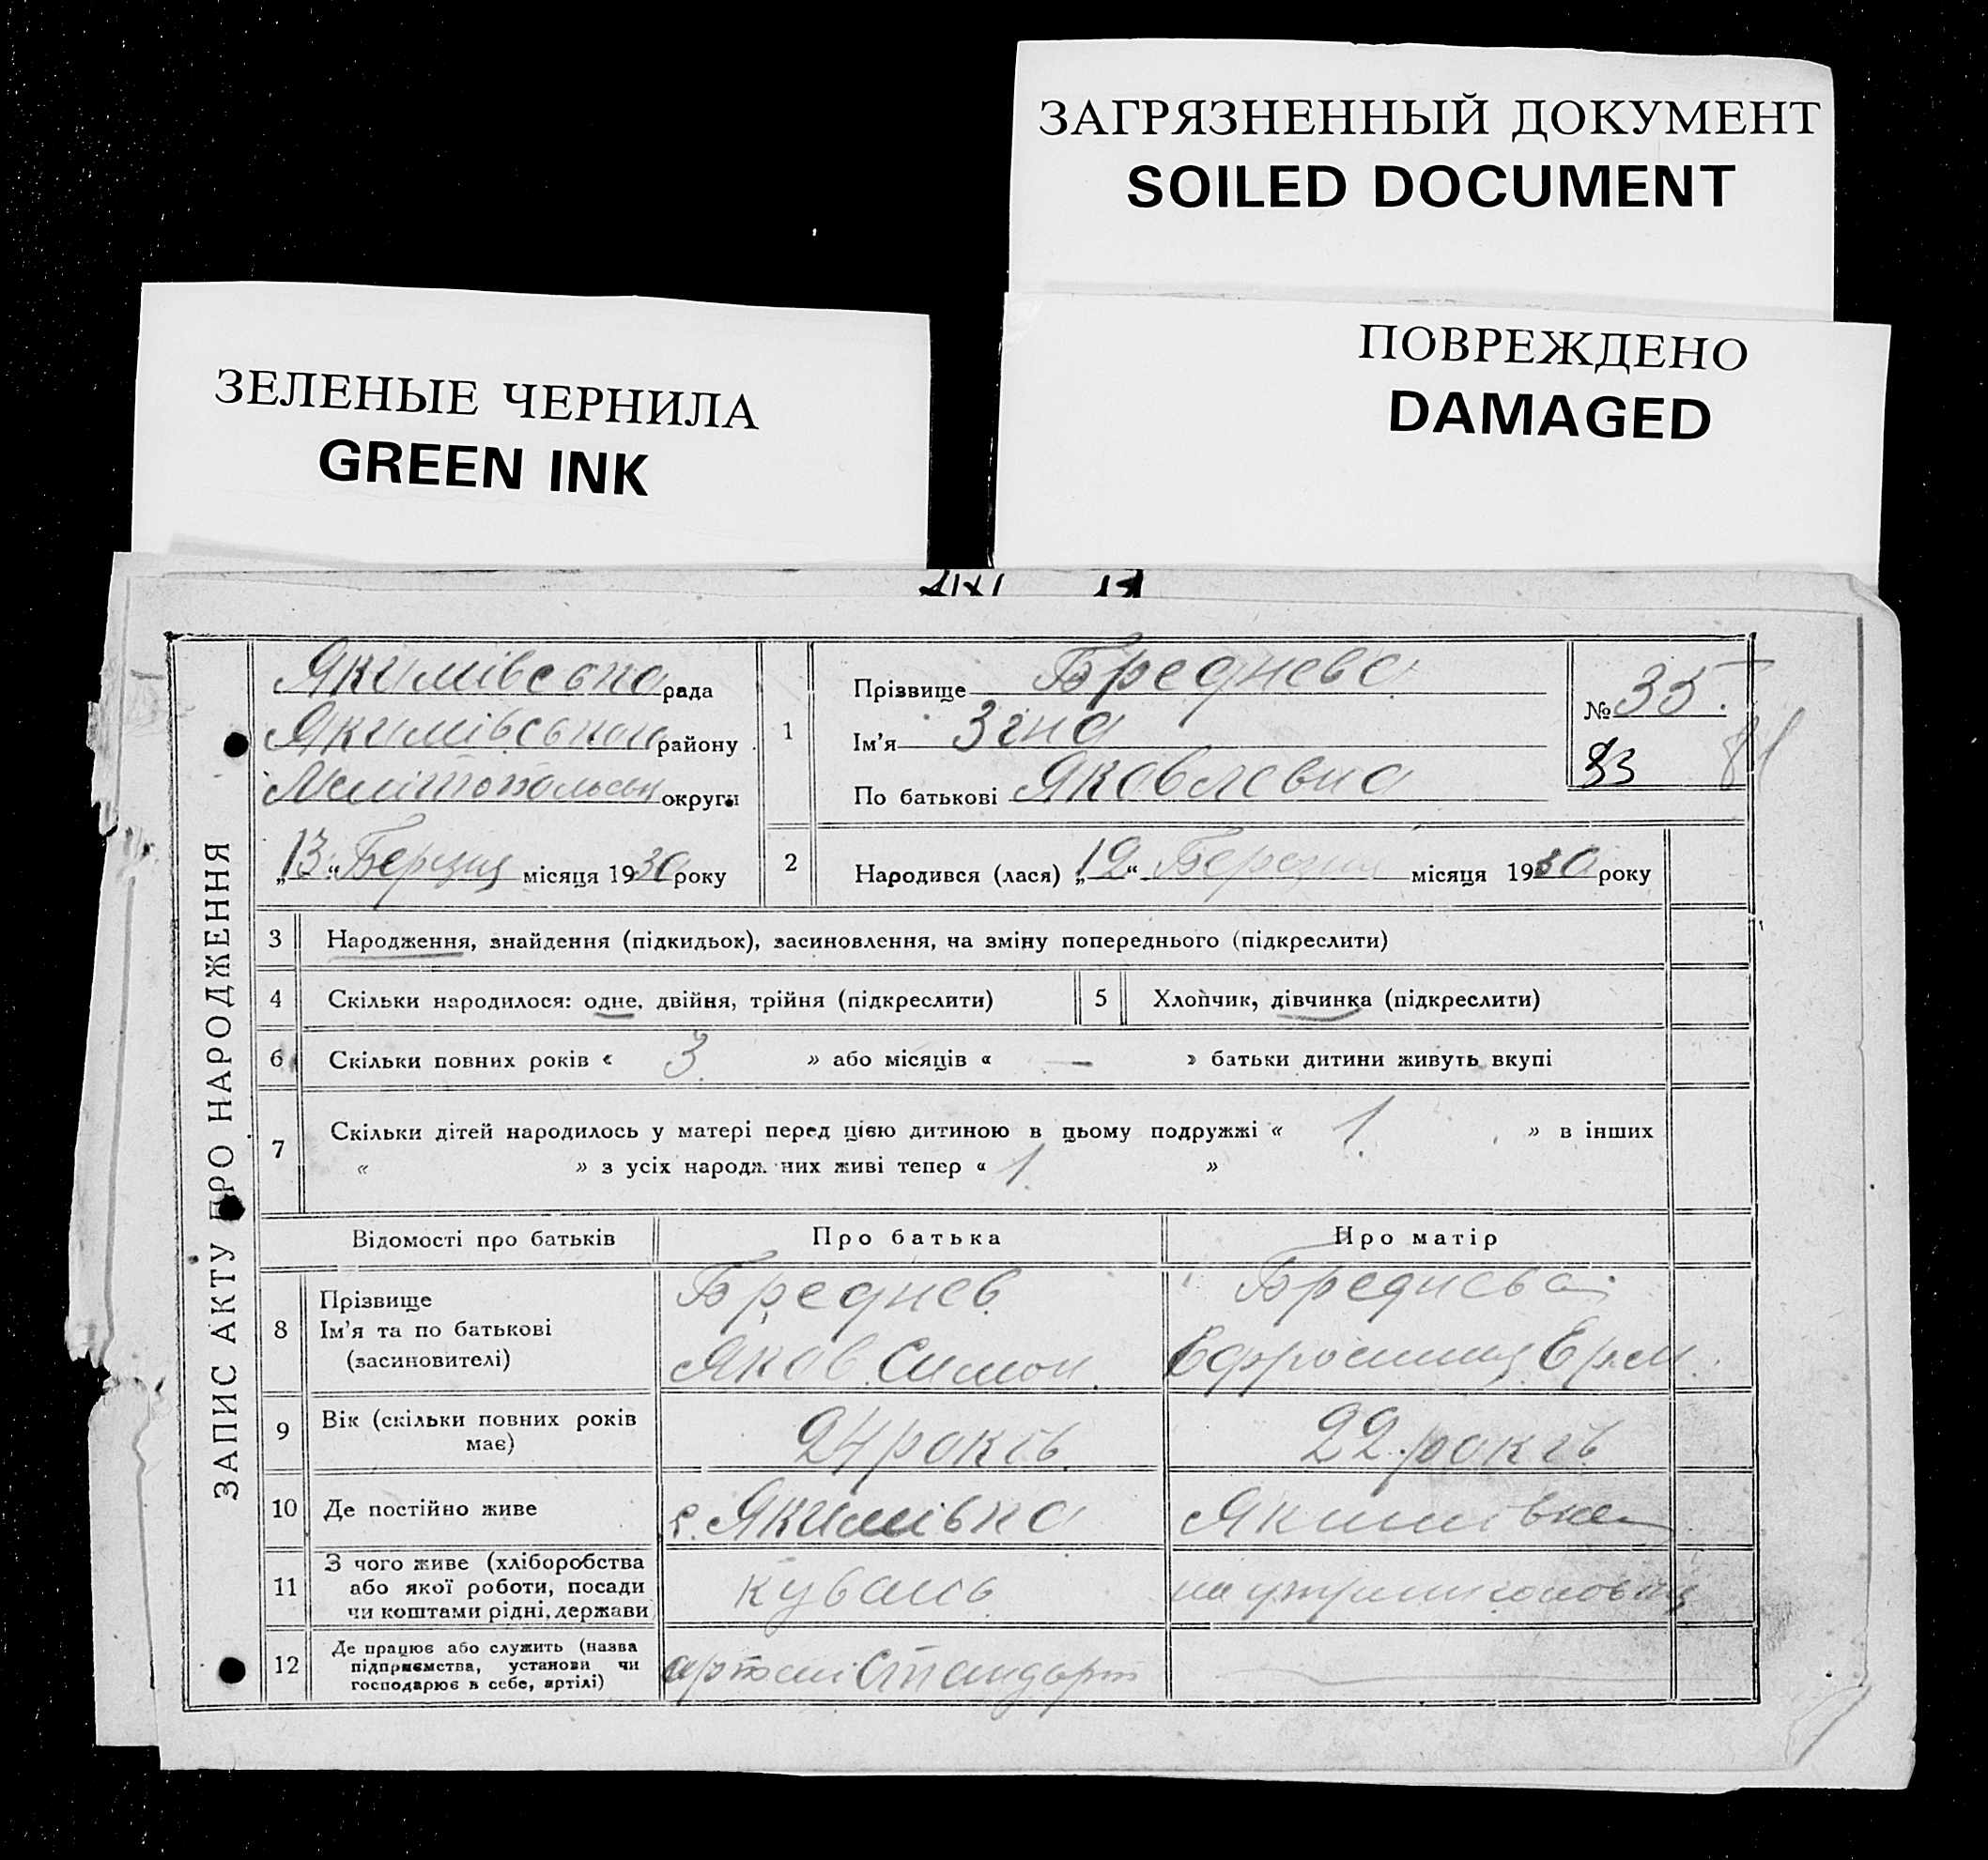 ЗАГРЯЗНЕННЫЙ ДОКУМЕНТ
SOILED DOCUMENT
ПОВРЕЖДЕНО
DAMAGED
ЗЕЛЕНЫЕ ЧЕРНИЛА
GREEN INK
ЗАПИС АКТУ ПРО НАРОДЖЕННЯ
Якимівська рада
Якимівського району
Мелітопольськ округи
„13“ Березня місяця 1930 року
1
Прізвище Бреднева
Ім'я Зіна
По батькові Яковлевна
№ 35.
83
81
2
Народився (лася) „12“ Березня місяця 1930 року
3 Народження, знайдення (підкидьок), засиновлення, на зміну попереднього (підкреслити)
4 Скільки народилося: одне, двійня, трійня (підкреслити)
5 Хлопчик, дівчинка (підкреслити)
6 Скільки повних років « 3 » або місяців « — » батьки дитини живуть вкупі
7 Скільки дітей народилось у матері перед цією дитиною в цьому подружжі « 1. » в інших
« » з усіх народж. них живі тепер « 1. »
Відомості про батьків Про батька Про матір
8
Прізвище
Ім'я та по батькові
(засиновителі)
Бреднев
Яков Симон.
Бреднева
Ефросиния Ерм.
9
Вік (скільки повних років
має)
24 років
22 років
10 Де постійно живе с. Якимівка Якимівка
11
З чого живе (хліборобства
або якої роботи, посади
чи коштами рідні, держави
коваль
на утриман
12
Де працює або служить (назва
підприємства, установи чи
господарює в себе, артілі)
артелі Стандарт